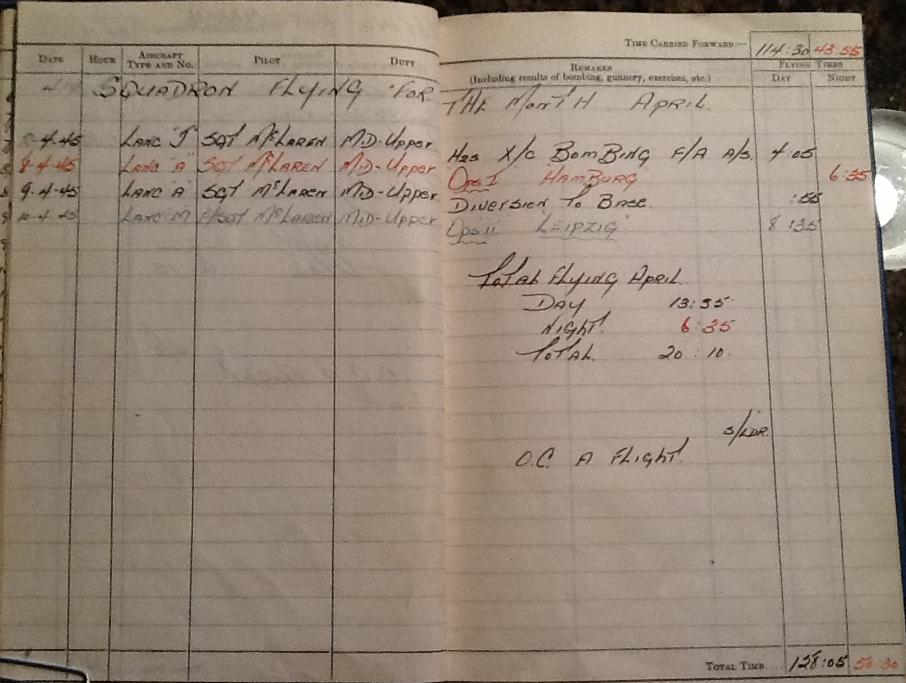 TIME CARRIED FORWARD:— 114:30 43:55
DATE HOUR AIRCRAFT TYPE AND No. PILOT DUTY REMARKS (Including results of bombing, gunnery, exercises, etc.) FLYING TIMES DAY NIGHT
SQUADRON FLYING FOR THE MONTH APRIL.
-4-45 LANC "J" SGT McLAREN MID-Upper H2S X/C BOMBING F/A A/S. 4.05
8-4-45 LANC "A" SGT McLAREN MID-Upper Ops I HAMBURG 6:35
9-4-45 LANC A SGT McLAREN MID-Upper DIVERSION TO BASE. :55
10-4-45 LANC M F/SGT McLAREN MID-Upper Ops II LEIPZIG 8:35
TOTAL FLYING April
DAY 13:35
NIGHT 6:35
TOTAL 20:10
S/LDR.
O.C. A FLIGHT.
TOTAL TIME 128:05 50:30